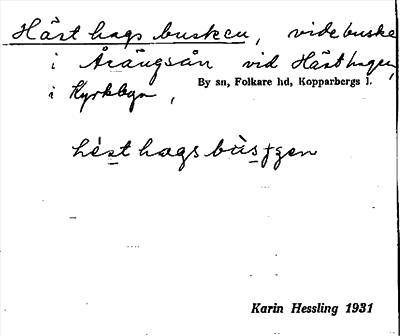 Hästhagsbusken, videbuske
i Årängsån vid Hästhagen,
i Kyrkbyn,
By sn, Folkare hd, Kopparbergs l.
hèsthagsbùsʃgen
Karin Hessling 1931